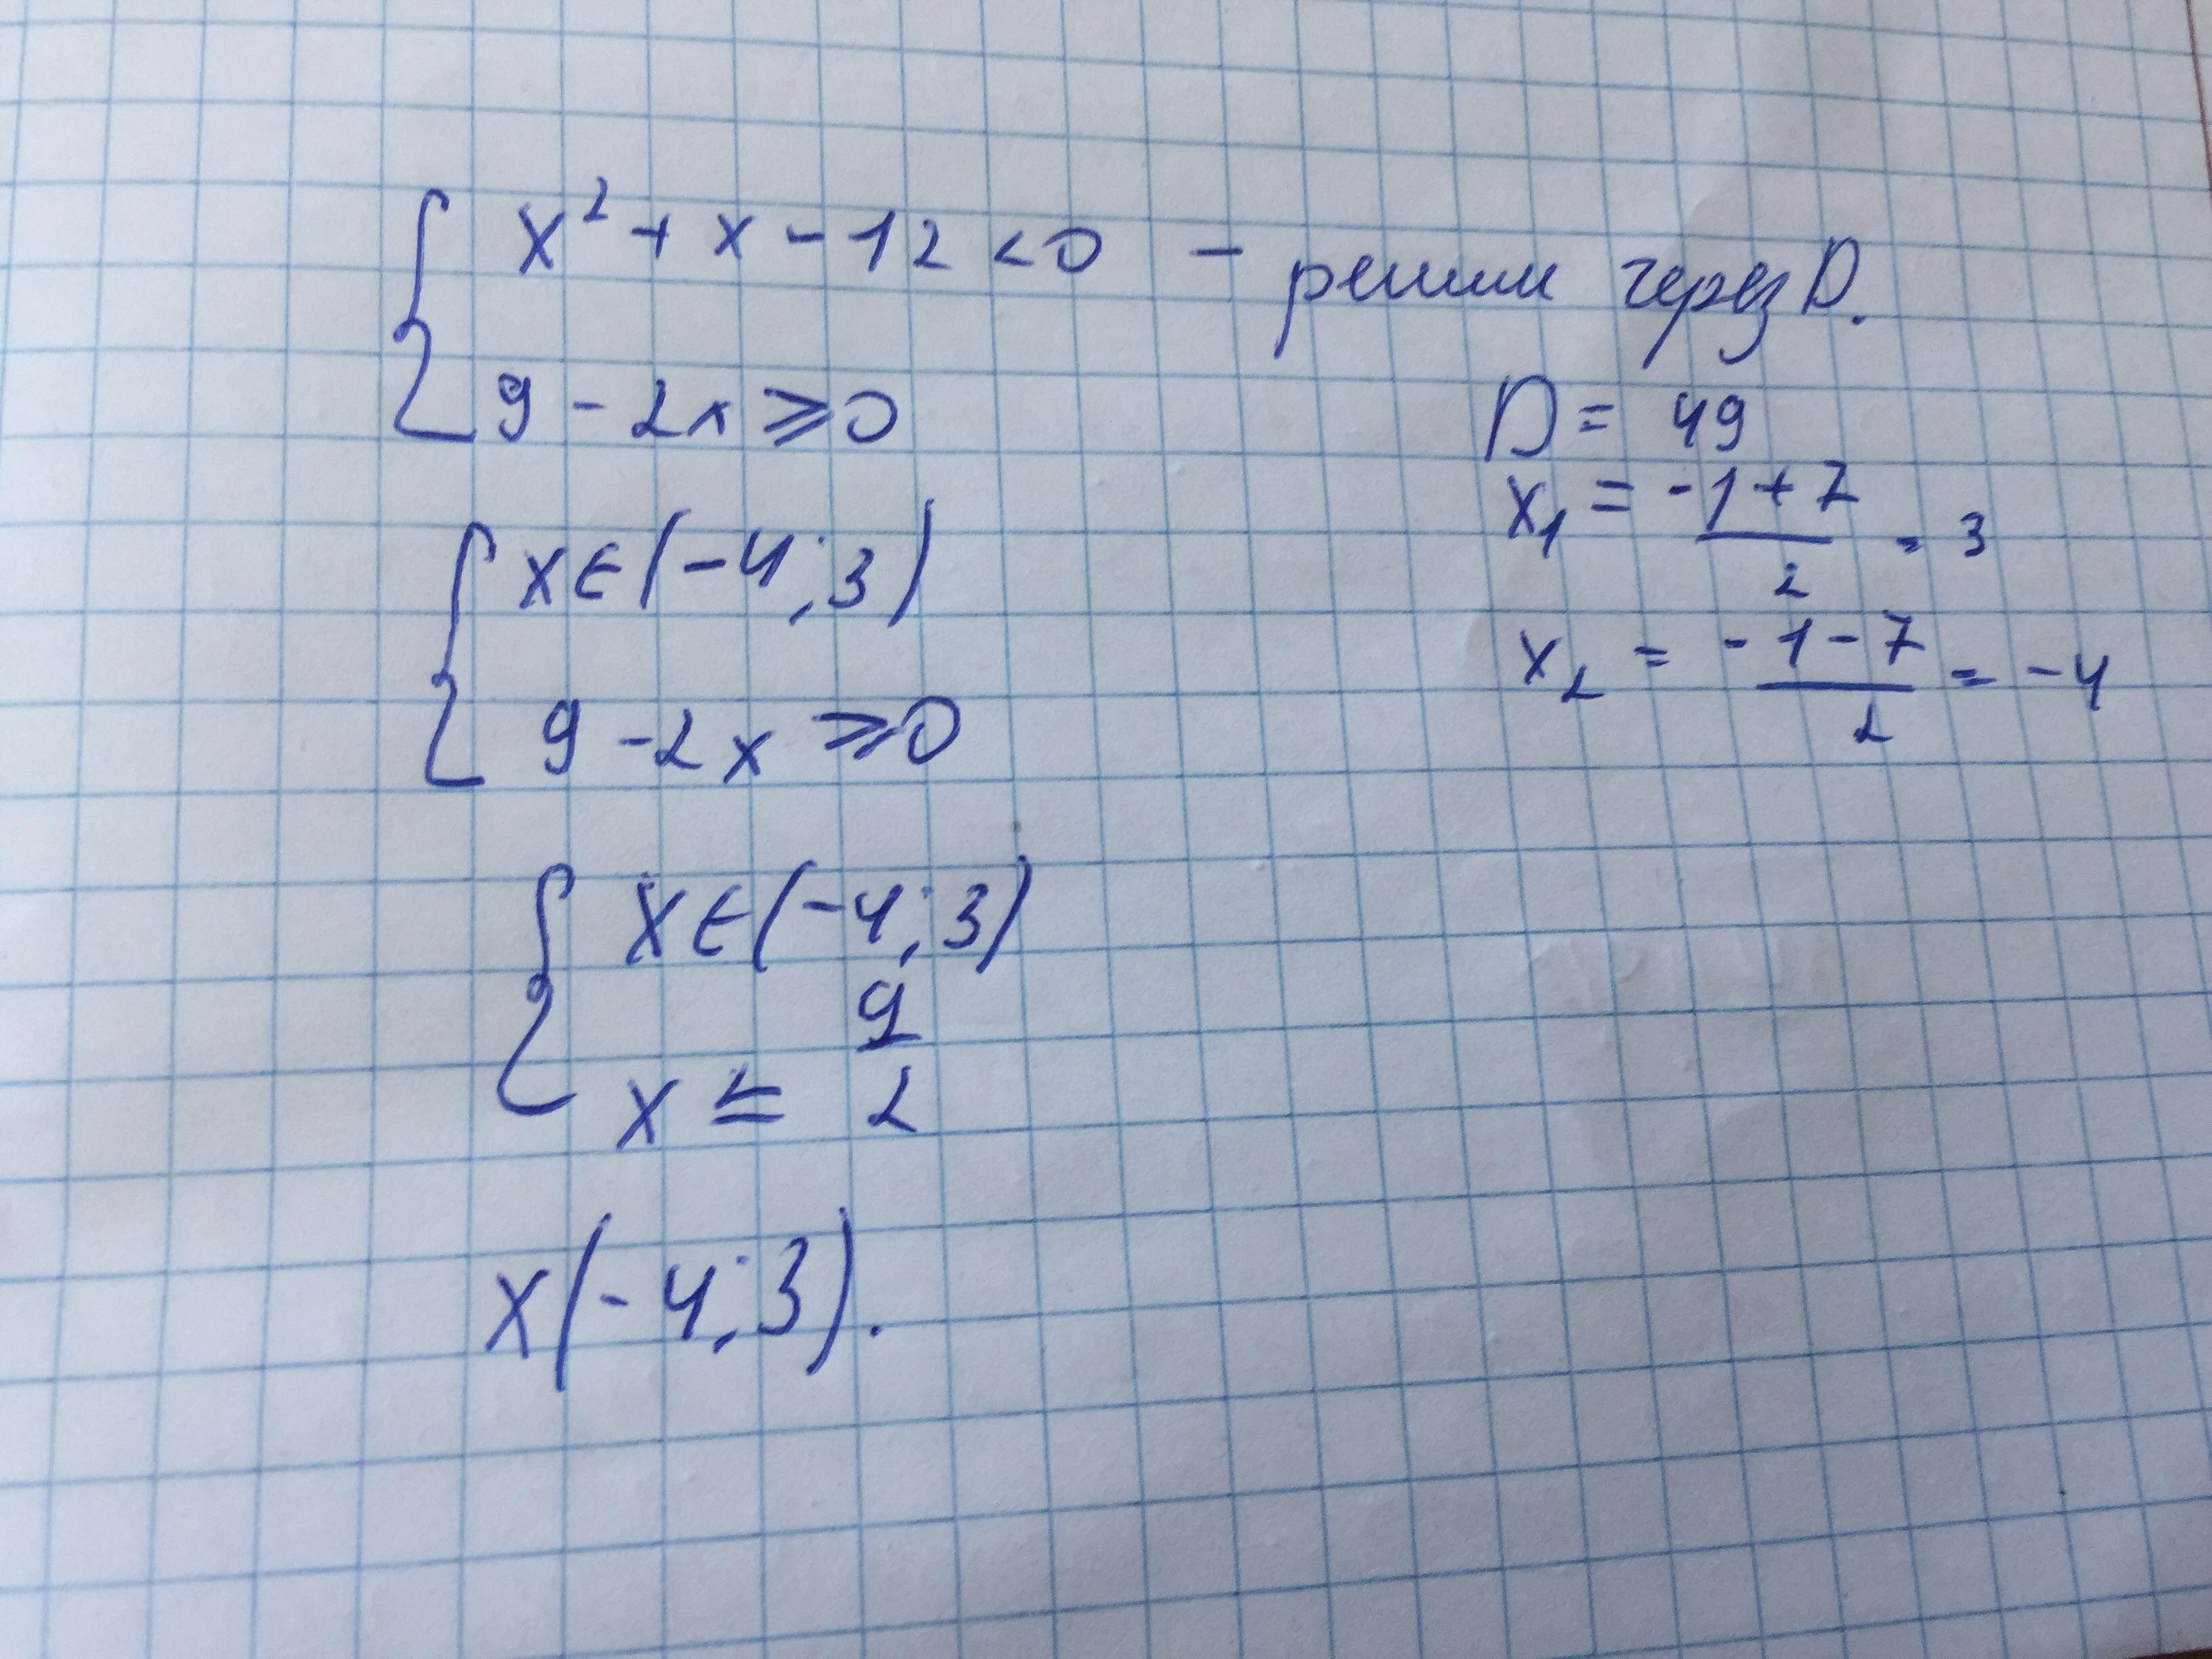 x² + x - 12 < 0 - решим через D.
9 - 2x ⩾ 0
D = 49
x₁ = (-1 + 7)/2 = 3
x₂ = (-1 - 7)/2 = -4
x ∈ (-4; 3)
9 - 2x ⩾ 0
x ∈ (-4; 3)
x ≤ 9/2
x (-4; 3).